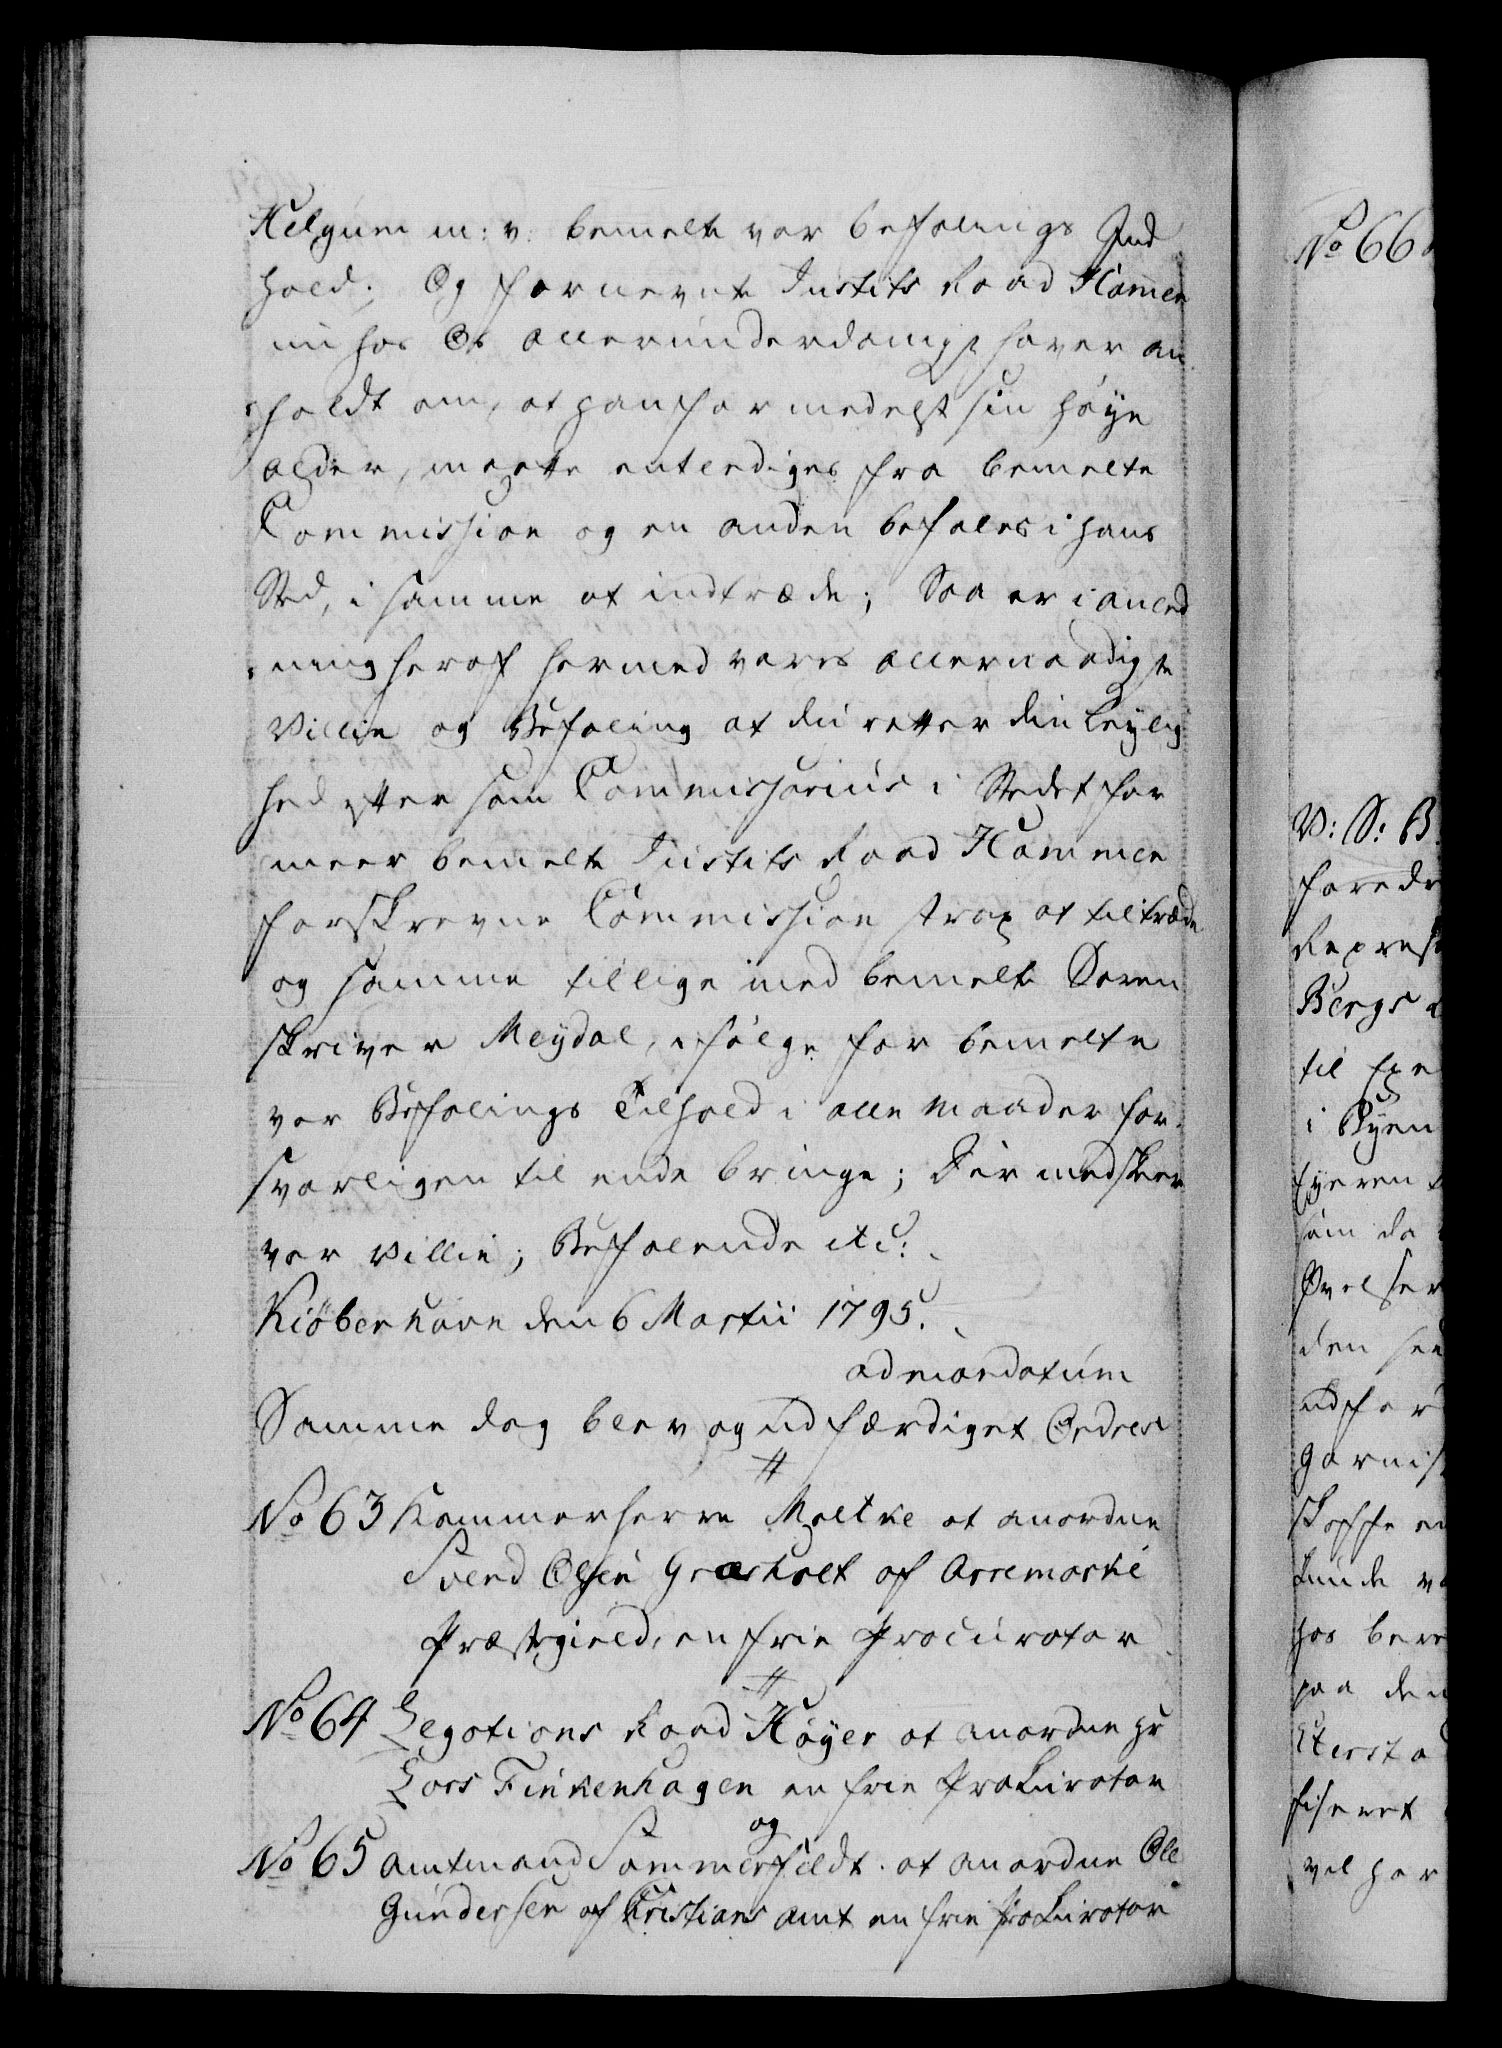 Helgum m: v: bemelte vor befalnings Ind
hold; Og fornevnte Justits Raad Hammer
nu hos Os allerunderdanigst haver an
holdt om, at han formedelst sin høye
alder, maatte entlediges fra bemelte
Commission og en anden befales i hans
Sted, i samme at indtræde; Saa er i anled
ning heraf hermed vores allernaadigste
Villie og Befaling at du retter din leylig
hed efter som Commissarius i Stedet for
meer bemelte Justits Raad Hammer
forskrevne Commission strax at tiltræde
og samme tillige med bemelte Soren
skriver Meydal, i følge for bemelte
vor Befalings Tilhold i alle Maader for-
svarligen til ende bringe; Dermed skeer
vor Villie; Befalende etc:
Kiøbenhavn den 6 Martii 1795.
ad mandatum
Samme dag blev og udfærdiget Ordres
//
No 63 Kammerherre Moltke at anordne
Svend Olsen Græsholt af Arremarke
Præstegield, en frie Procurator
//
No 64 Legations Raad Høyer at anordne hr
Lars Finkenhagen en frie Prokurator
og
No 65 Amtmand Sommerfeldt at anordne Ole
Gundersen af Christians amt en frie Prokurator
No 66
V: S: B.
foredr
Repres
Bergs
til Exe
i Byen
Eyeren
som da
Øvelser
den see
udfør
Garnis
skaffe en
kunde v
hos bem
paa den
fiseret
vel har